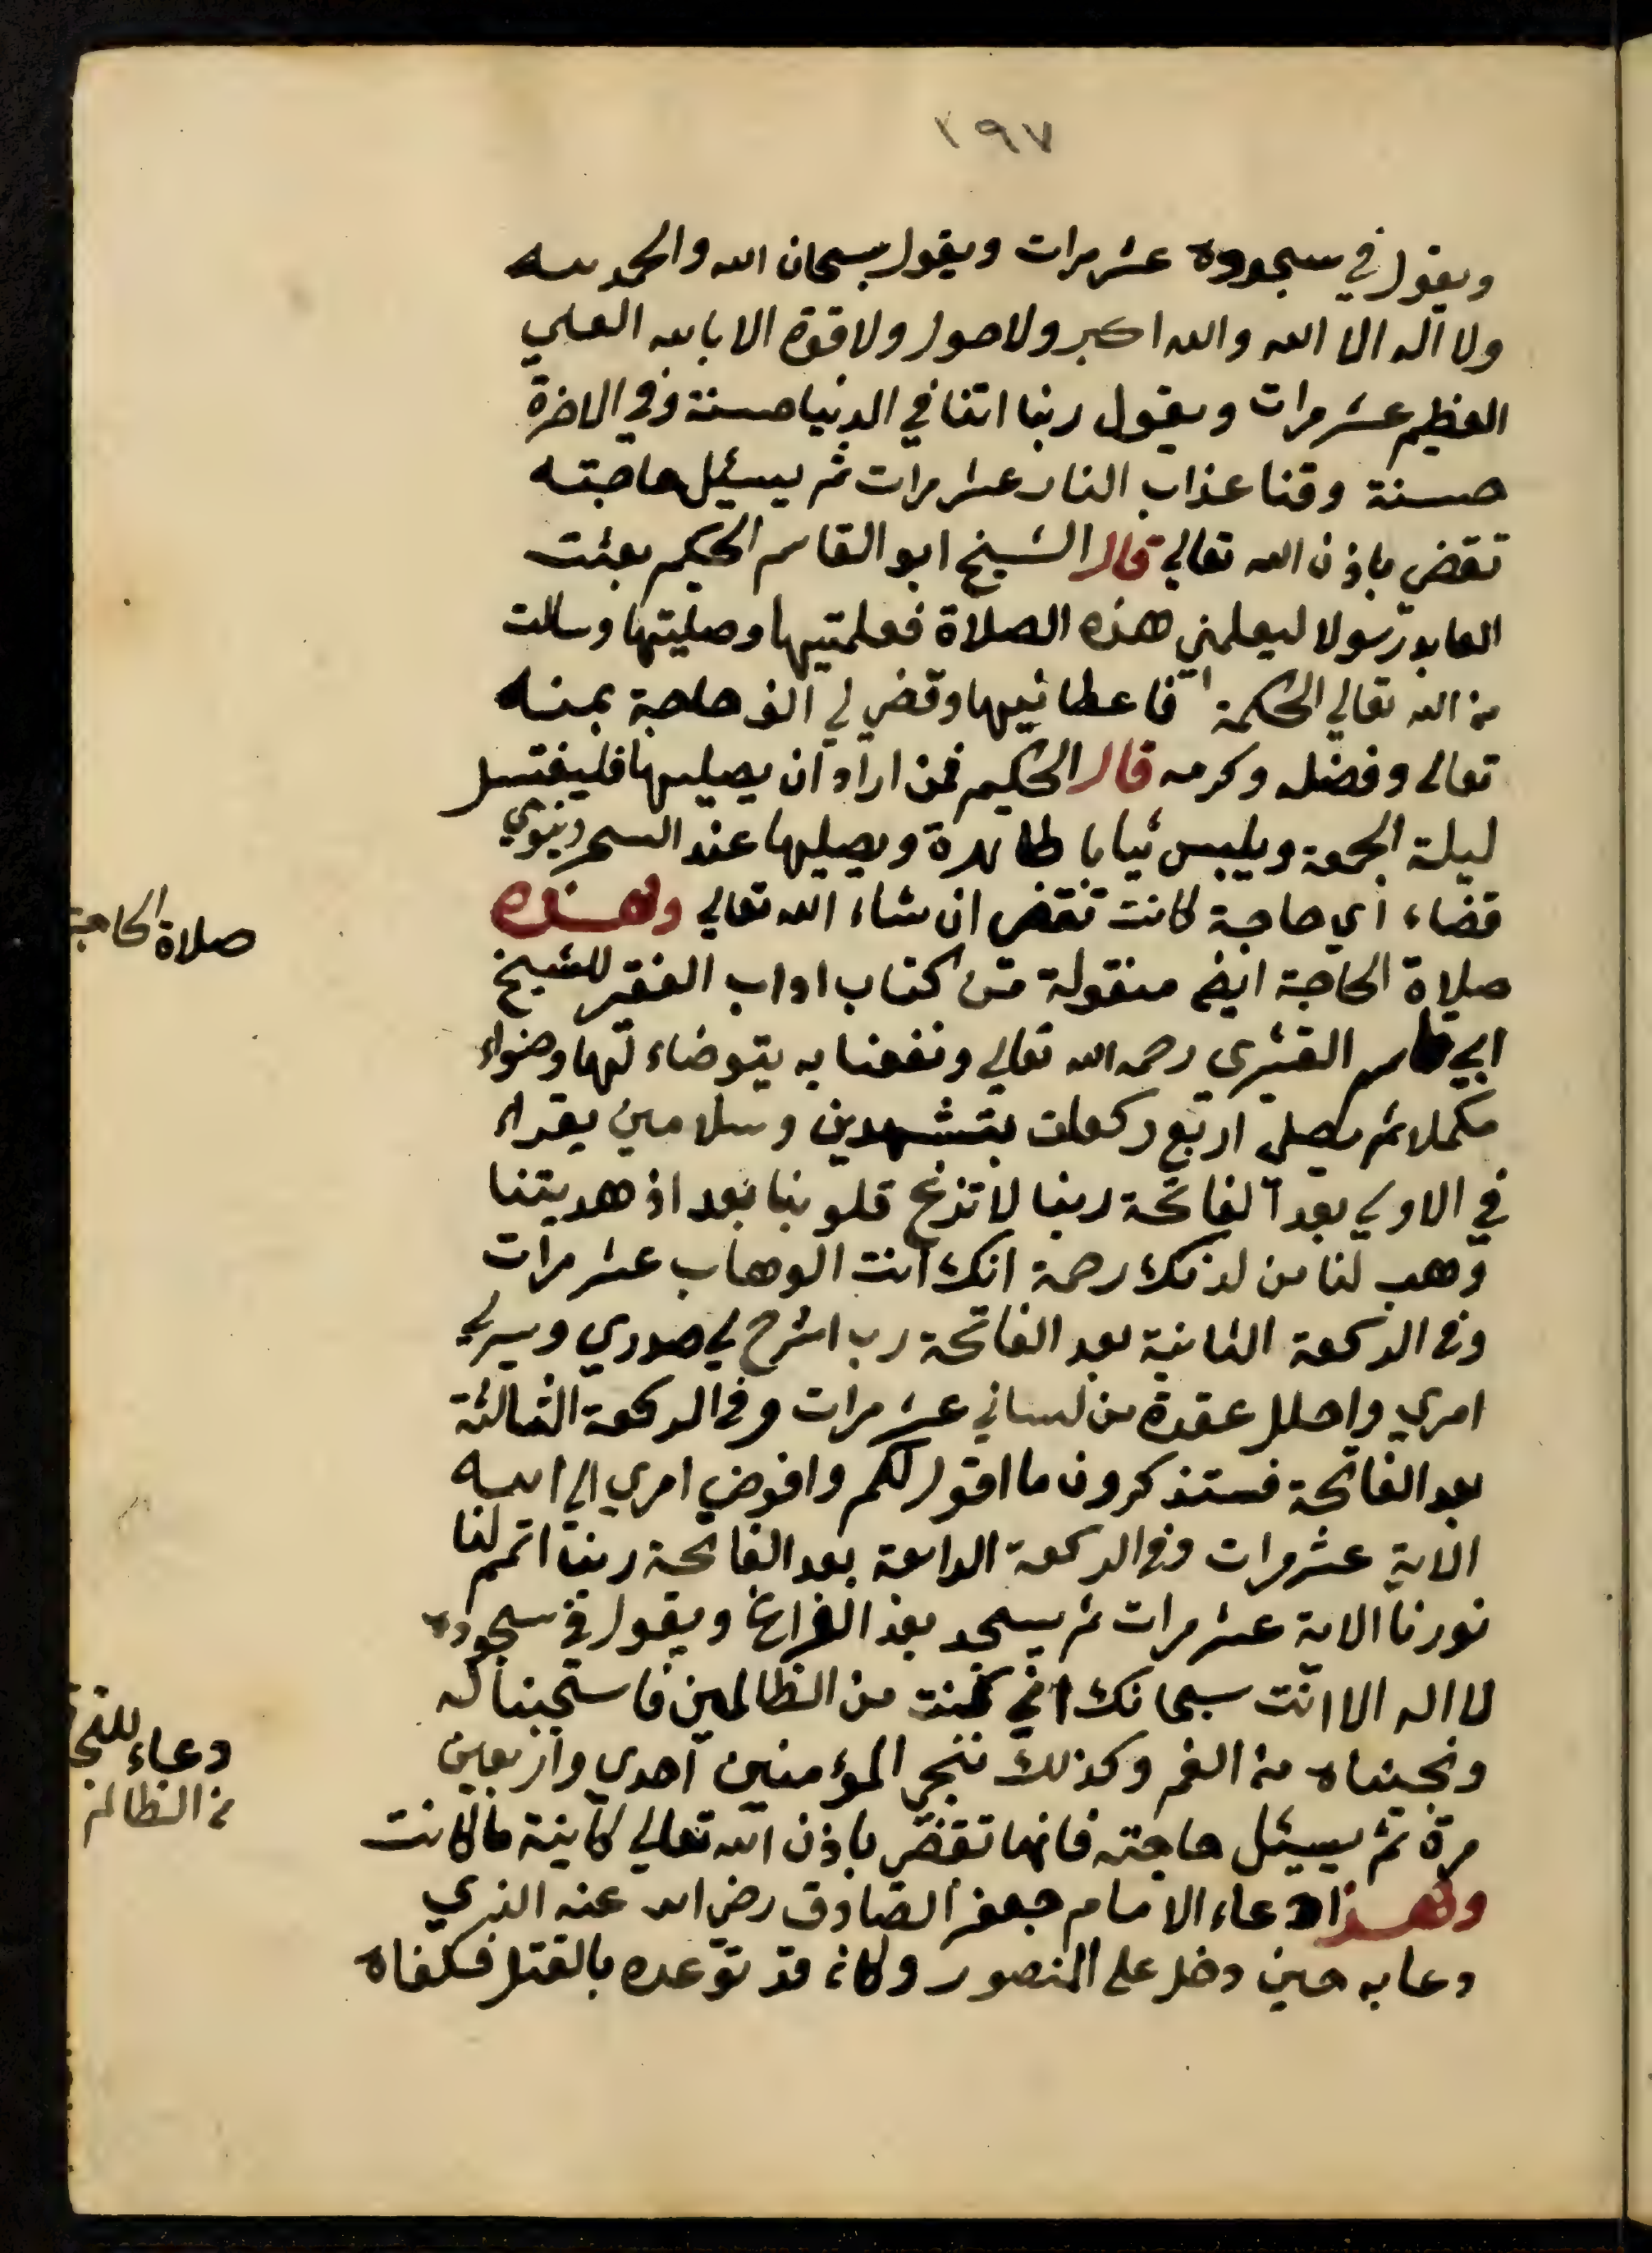 ٢٩٧
ويقول في سجوده عشر مرات ويقول سبحان الله والحمد لله
ولا اله الا الله والله اكبر ولا حول ولا قوة الا بالله العلي
العظيم عشر مرات ويقول ربنا اتنا في الدنيا حسنة وفي الاخرة
حسنة وقنا عذاب النار عشر مرات ثم يسئل حاجته
تقضي باذن الله تعالي قال الشيخ ابو القاسم الحكيم بعثت
العابد رسولا ليعلمني هذه الصلاة فعلمتيها وصليتها وسالت
من الله تعالي الحكمة فاعطانيها وقضي لي الف حاجة بمنه
تعالى وفضله وكرمه قال الحكيم فمن اراد ان يصليها فليغتسل
ليلة الجمعة ويلبس ثيابا طاهرة ويصليها عند السحر وينوي
قضاء اي حاجة كانت تقضي ان شاء الله تعالي وهذه
صلاة الحاجة
صلاة الحاجة ايضا منقولة من كتاب اداب الفقير للشيخ
ابي قاسم القشيري رحمه الله تعالي ونفعنا به يتوضاء لها وضواء
مكملا ثم يصلي اربع ركعات بتشهدين وسلامين يقراء
في الاولي بعد الفاتحة ربنا لا تزغ قلوبنا بعد اذ هديتنا
وهب لنا من لدنك رحمة انك انت الوهاب عشر مرات
وفي الركعة الثانية بعد الفاتحة رب اشرح لي صدري ويسر لي
امري واحلل عقدة من لساني عشر مرات وفي الركعة الثالثة
بعد الفاتحة فستذكرون ما اقول لكم وافوض امري الي الله
الاية عشر مرات وفي الركعة الرابعة بعد الفاتحة ربنا اتمم لنا
نورنا الاية عشر مرات ثم يسجد بعد الفراغ ويقول في سجوده
لا اله الا انت سبحانك اني كنت من الظالمين فاستجبنا له
ونجيناه من الغم وكذلك ننجي المؤمنين احدي واربعين
دعاء للنجا
من الظالم
مرة ثم يسئل حاجته فانها تقضي باذن الله تعالي كاينة ما كانت
وهذا دعاء الامام جعفر الصادق رضي الله عنه الذي
دعا به حين دخل على المنصور وكان قد توعده بالقتل فكفاه